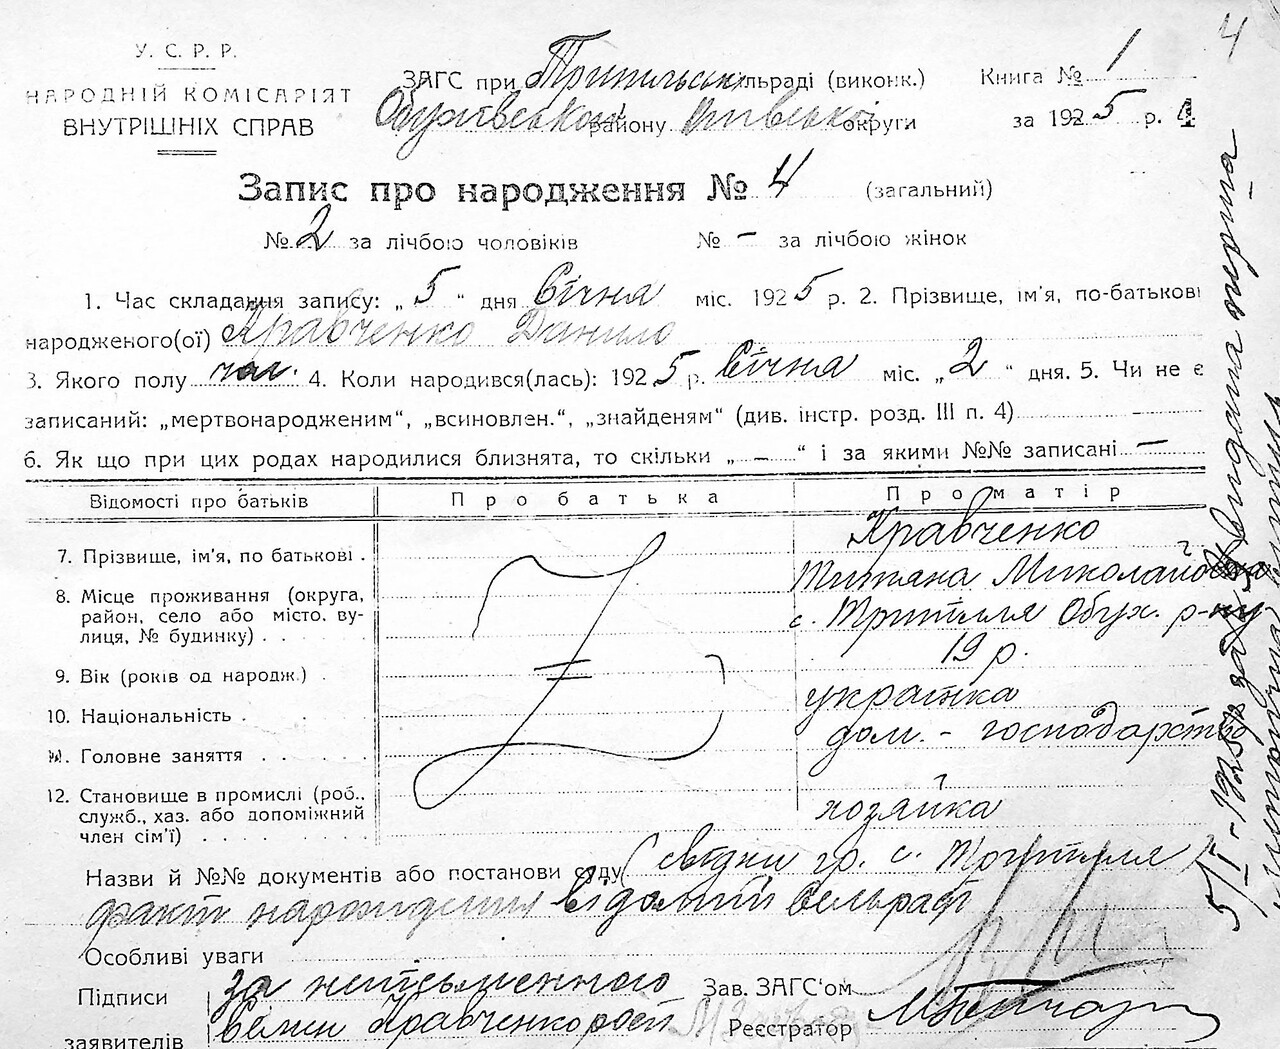 4
У. С. Р. Р.
НАРОДНІЙ КОМІСАРІЯТ
ВНУТРІШНІХ СПРАВ
ЗАГС при Трипильськ льраді (виконк.)
Обухівському району Київської округи
Книга № 1
за 1925 р. 4
Запис про народження № 4 (загальний)
№ 2 за лічбою чоловіків № – за лічбою жінок
1. Час складання запису: „ 5 “ дня Січня міс. 1925 р. 2. Прізвище, ім'я, по-батькові
народженого(ої) Кравченко Данило
3. Якого полу чол. 4. Коли народився(лась): 1925 р. Січня міс. „ 2 “ дня. 5. Чи не є
записаний: „мертвонародженим“, „всиновлен.“, „знайденям“ (див. інстр. розд. III п. 4) –
6. Як що при цих родах народилися близнята, то скільки „ – “ і за якими №№ записані –
Відомості про батьків Про батька Про матір
7. Прізвище, ім'я, по батькові . Кравченко
Титяна Миколайовна
8. Місце проживання (округа,
район, село або місто, ву-
лиця, № будинку) . . . . .
с. Трипілля Обух. р-ну
9. Вік (років од народж.) . 19 р.
10. Національність . українка
11. Головне заняття . . . . . дом. - господарство
12. Становище в промислі (роб.,
служб., хаз. або допоміжний
член сім'ї) . . . . . . .
хозяйка
Назви й №№ документів або постанови суду свідки гр. с. Трипілля
факт народження відомий Сельраді
Особливі уваги
Підписи
заявителів
за неписьменного
Кравченко
Зав. ЗАГС'ом
Реєстратор
5/I - 1925 р. за № видана